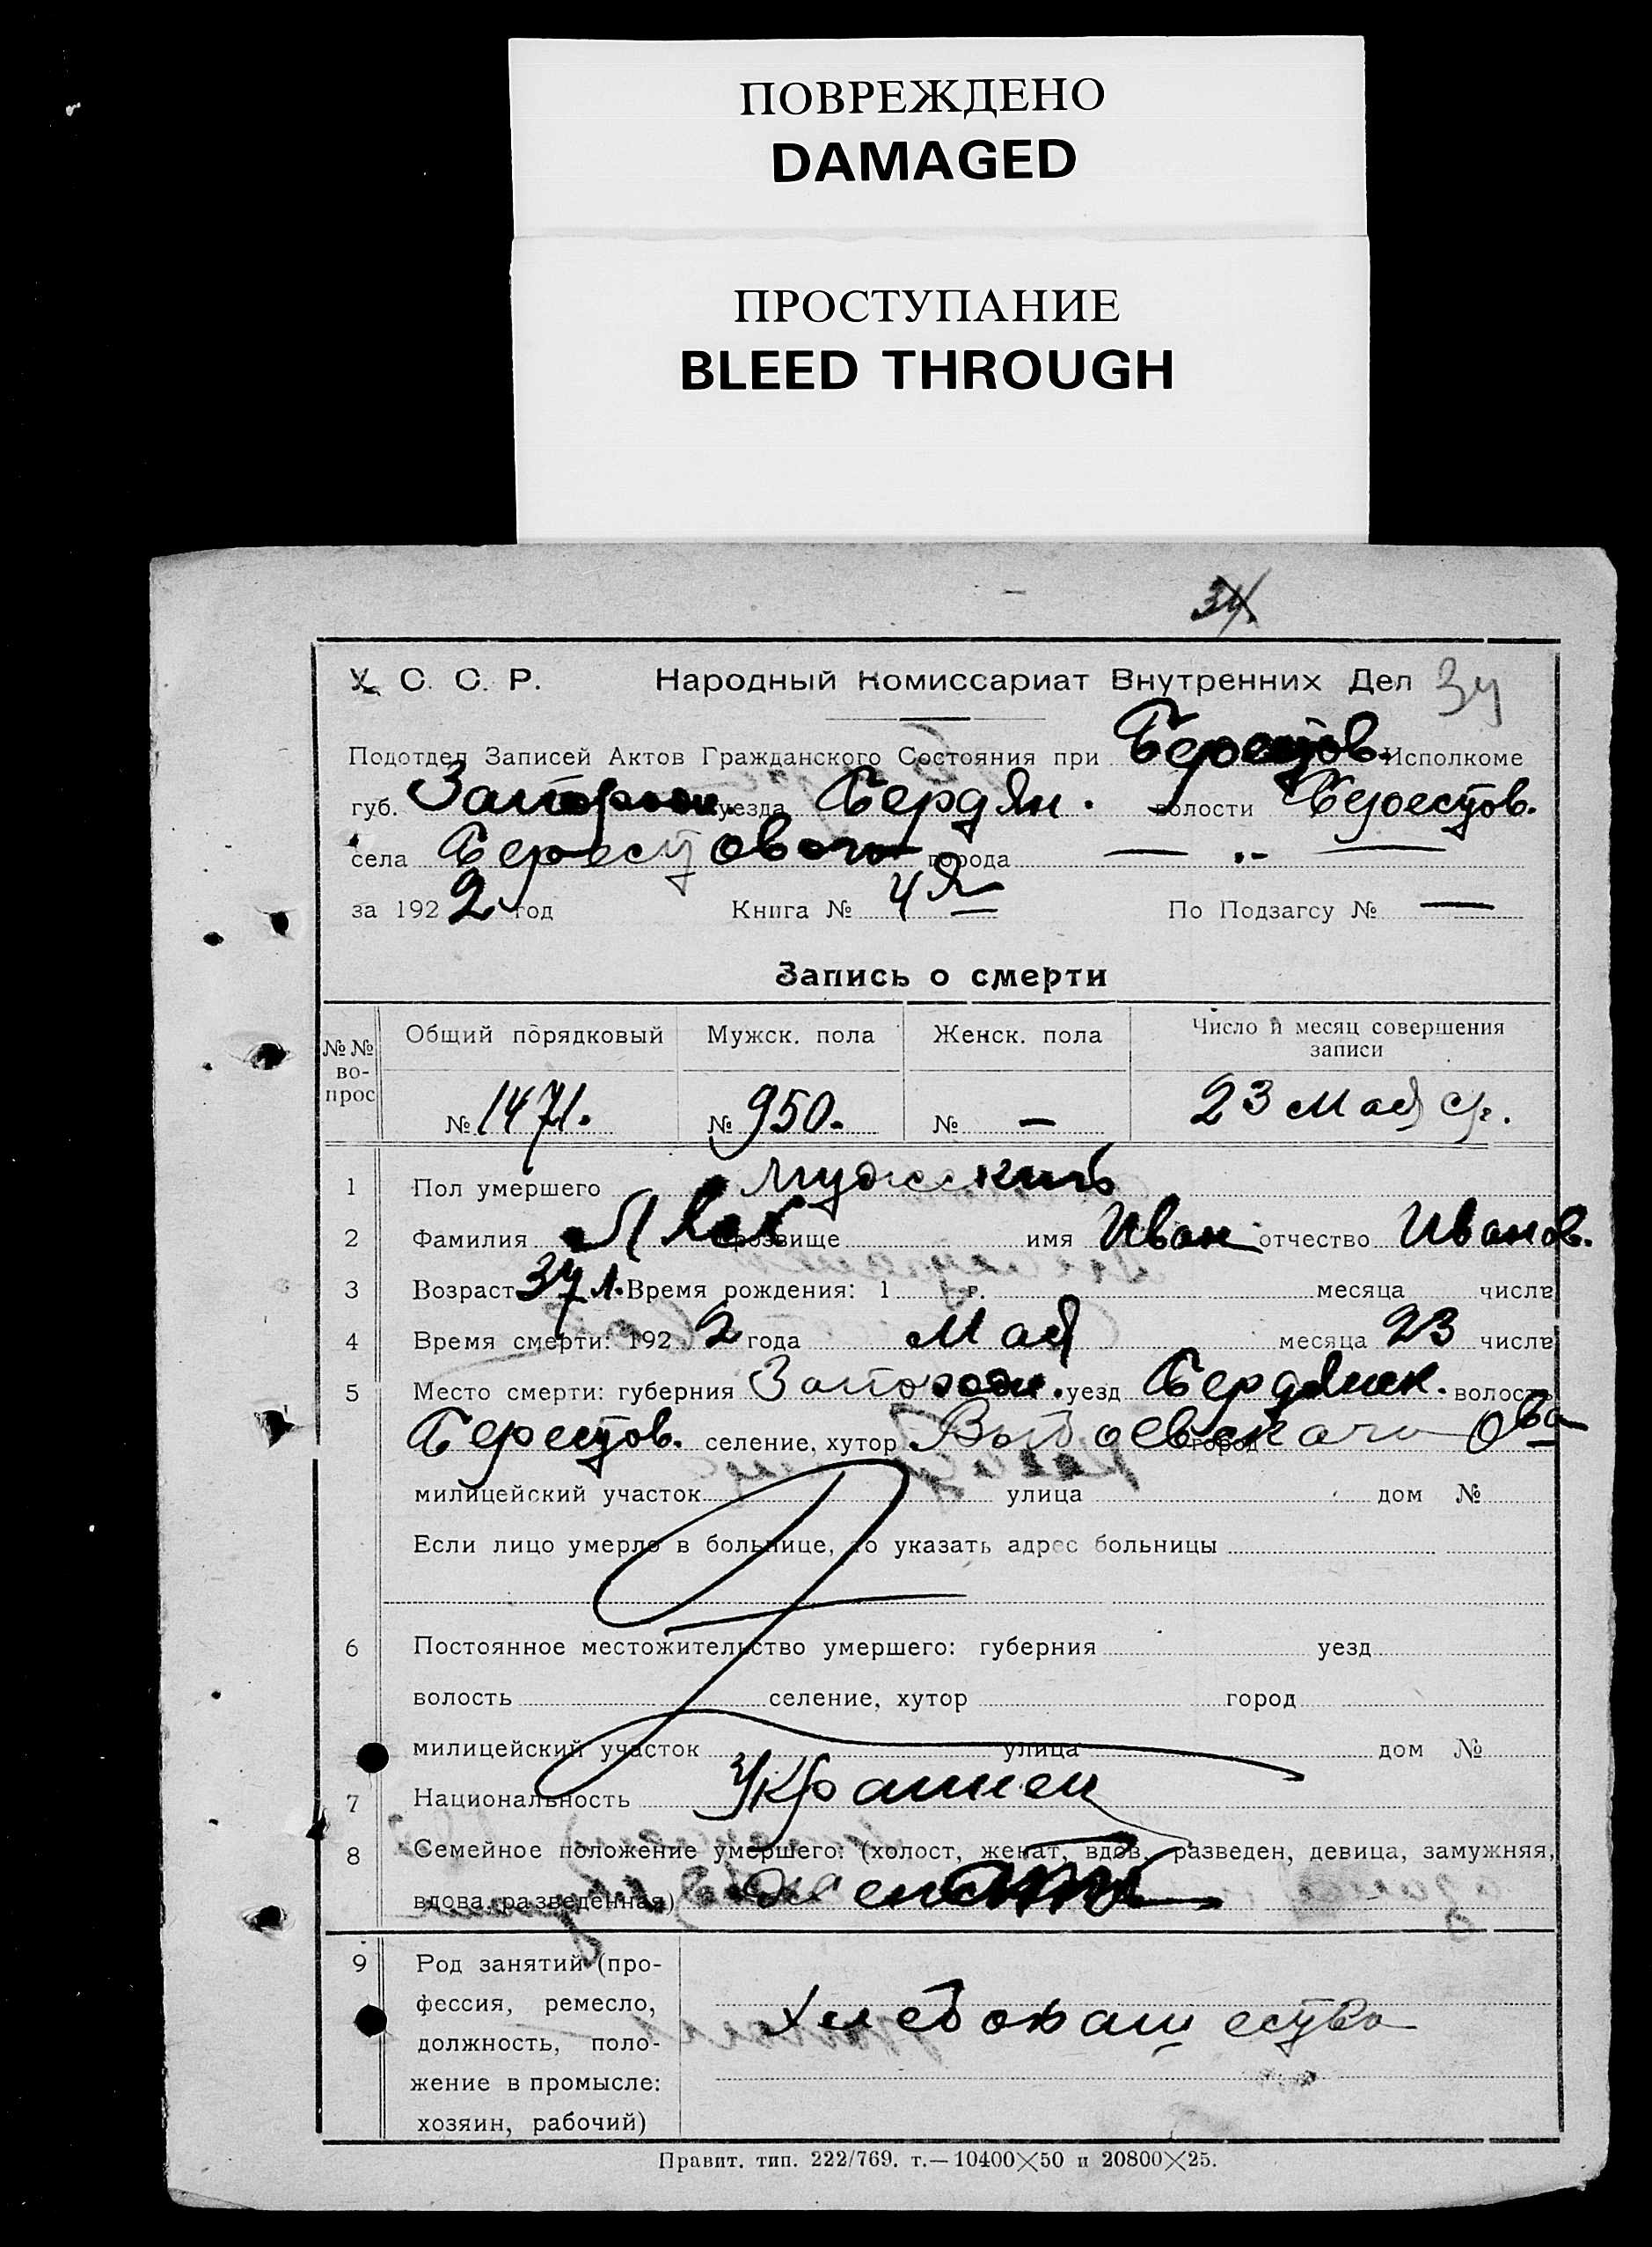 ПОВРЕЖДЕНО
DAMAGED
ПРОСТУПАНИЕ
BLEED THROUGH
34
У. С. С. Р. Народный Комиссариат Внутренних Дел 34
Подотдел Записей Актов Гражданского Состояния при Берестов. Исполкоме
губ. Запорож. уезда Бердян. волости Берестов.
села Берестового города — „ —
за 1922 год Книга № 4я По Подзагсу № —
Запись о смерти
№№ вопрос Общий порядковый Мужск. пола Женск. пола Число и месяц совершения записи
№ 1471. № 950. № — 23 Мая с/г.
1 Пол умершего мужский
2 Фамилия прозвище имя Иван отчество Иванов.
3 Возраст 37 л. Время рождения: 1 г. месяца числа
4 Время смерти: 1922 года Мая месяца 23 числа
5 Место смерти: губерния Запорож. уезд Бердянск. волость
Берестов. селение, хутор город о-ва
милицейский участок улица дом №
Если лицо умерло в больнице, то указать адрес больницы
6 Постоянное местожительство умершего: губерния уезд
волость селение, хутор город
милицейский участок улица дом №
7 Национальность Украинец
8 Семейное положение умершего: (холост, женат, вдов, разведен, девица, замужняя,
вдова, разведенная) женатый
9 Род занятий (про-
фессия, ремесло,
должность, поло-
жение в промысле:
хозяин, рабочий)
Хлебопашество
Правит. тип. 222/769. т.—10400×50 и 20800×25.